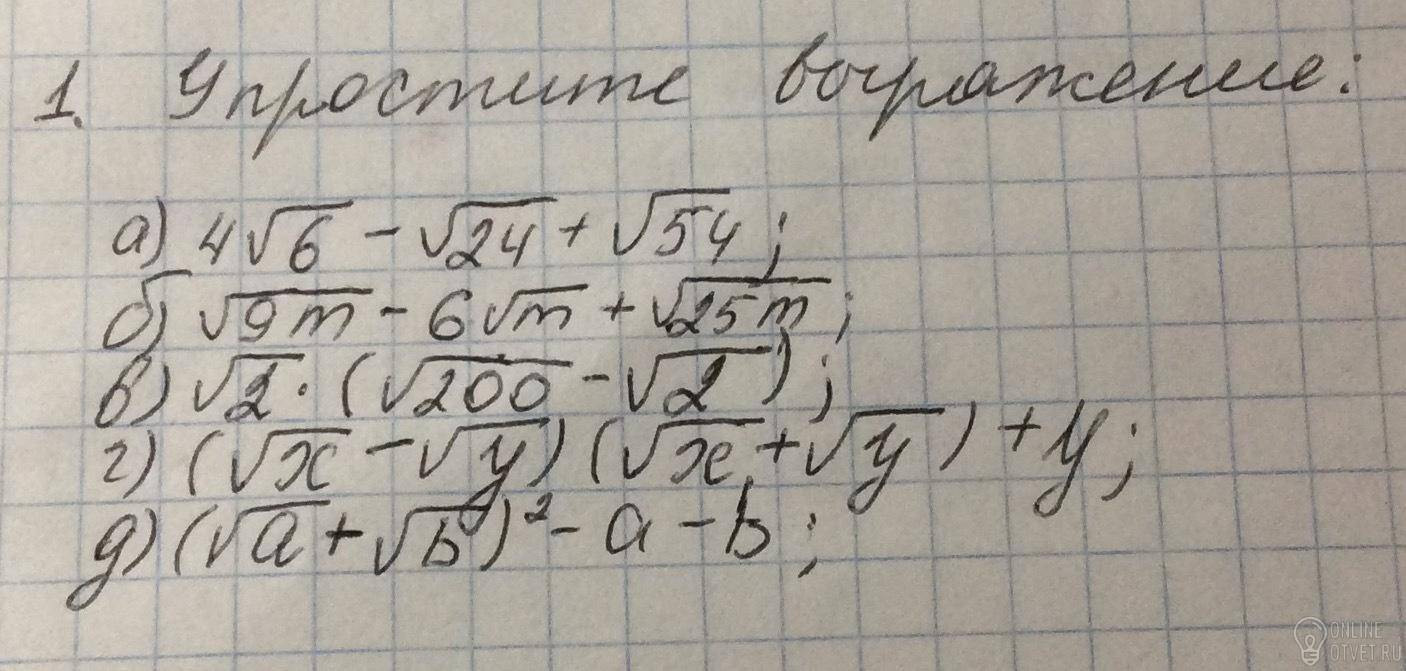 1. Упростите выражение:
а) 4√6 - √24 + √54;
б) √9m - 6√m + √25m;
в) √2 · (√200 - √2);
г) (√x - √y)(√x + √y) + y;
д) (√a + √b)² - a - b;
ONLINE
OTVET.RU